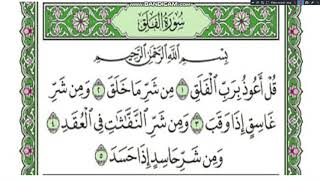 WWW.BANDICAM.COM
سُورَةُ الْفَلَقِ
بِسْمِ اللَّهِ الرَّحْمَٰنِ الرَّحِيمِ
قُلْ أَعُوذُ بِرَبِّ الْفَلَقِ ١ مِن شَرِّ مَا خَلَقَ ٢ وَمِن شَرِّ
غَاسِقٍ إِذَا وَقَبَ ٣ وَمِن شَرِّ النَّفَّاثَاتِ فِي الْعُقَدِ ٤
وَمِن شَرِّ حَاسِدٍ إِذَا حَسَدَ ٥